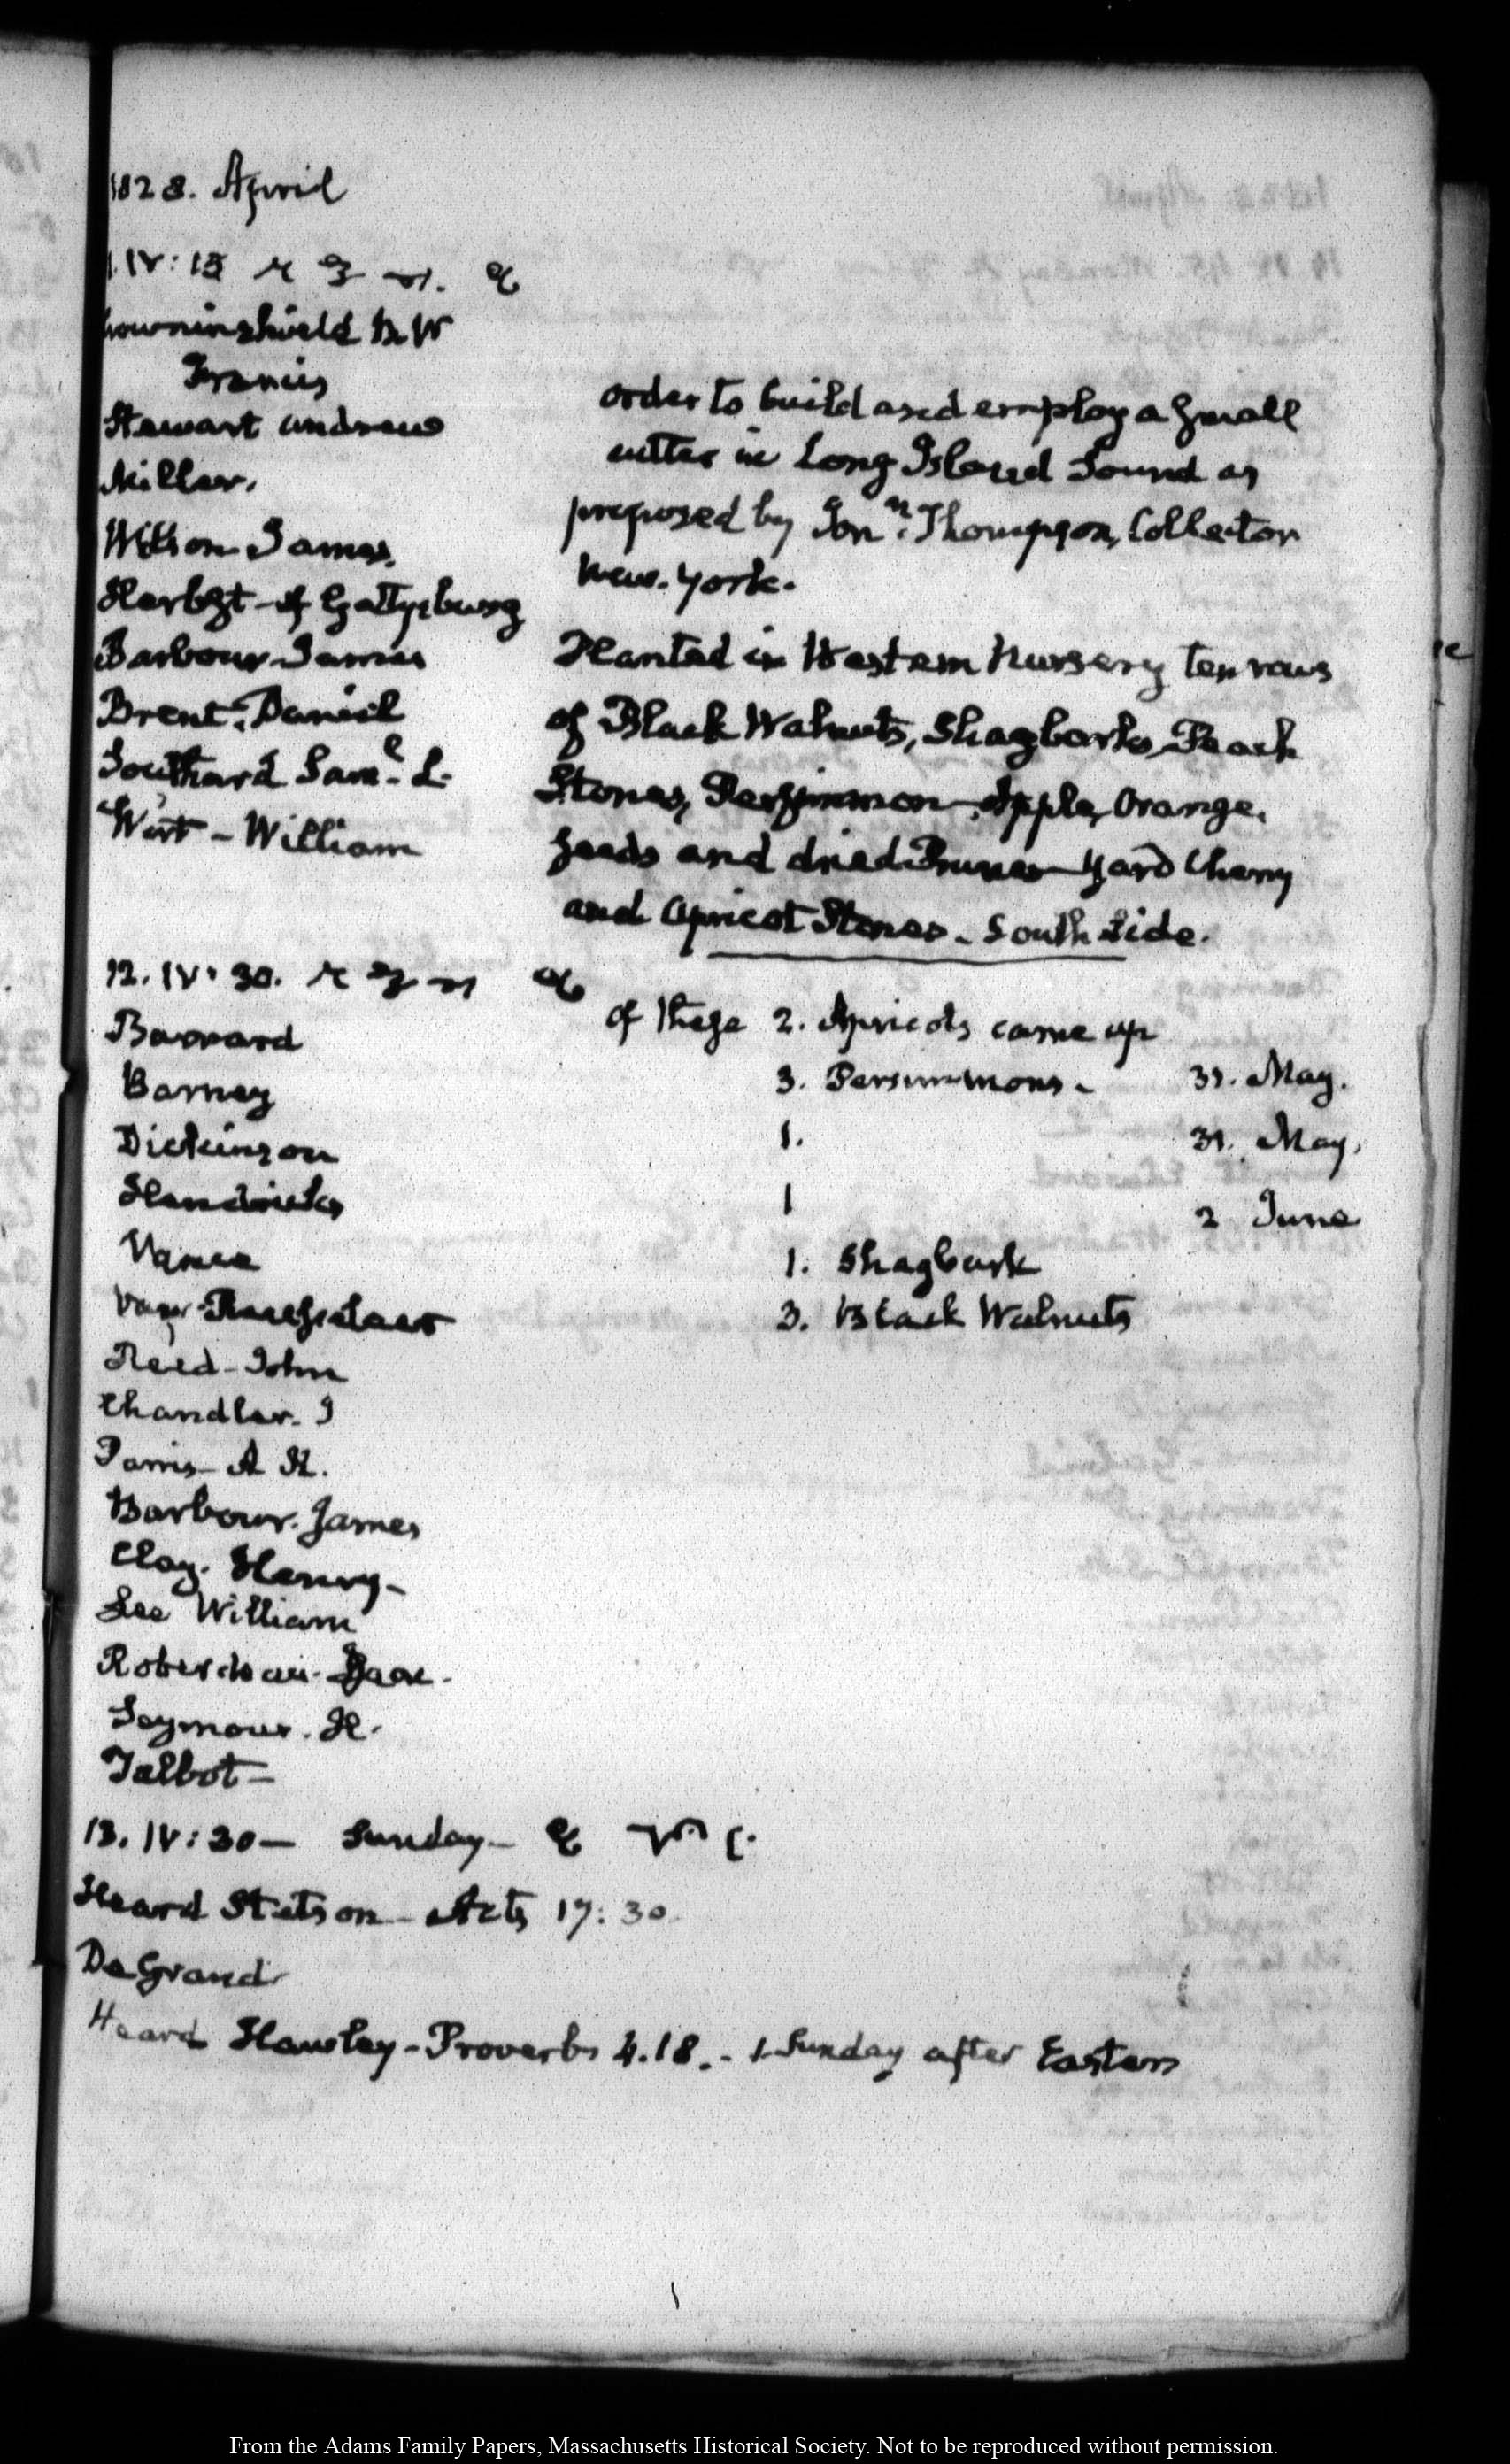 1828. April
IV:15
Crowninshield B. W
Francis
Stewart Andrew
Miller.
Wilson James.
Herbst of Gettysburg
Barbour James
Brent. Daniel
Southard Saml. L.
Wirt - William
order to build and employ a small
cutter in Long Island Sound as
proposed by Jonn. Thompson, Collector
New-York.
Planted in Western Nursery ten rows
of Black Walnuts, Shagbarks, Peach
Stones, Persimmon, Apple, Orange,
seeds and dried Prunes Yard Cherry
and Apricot Stones - South Side.
12. IV. 30.
Barnard
Barney
Dickinson
Hendricks
Vance
Van Rensselaer
Reed - John
Chandler. J
Parris - A K.
Barbour. James
Clay. Henry -
Lee William
Roberdeau. Isaac.
Seymour. H.
Talbot -
of these 2. Apricots came up
3. Persimmons - 31. May.
1. 31. May,
1 2 June
1. Shagbark
3. Black Walnuts
13. IV:30 - Sunday -
Heard Stetson - Acts 17:30
DeGrand
Heard Hawley - Proverbs 4.18. - 1 Sunday after Easter
From the Adams Family Papers, Massachusetts Historical Society. Not to be reproduced without permission.